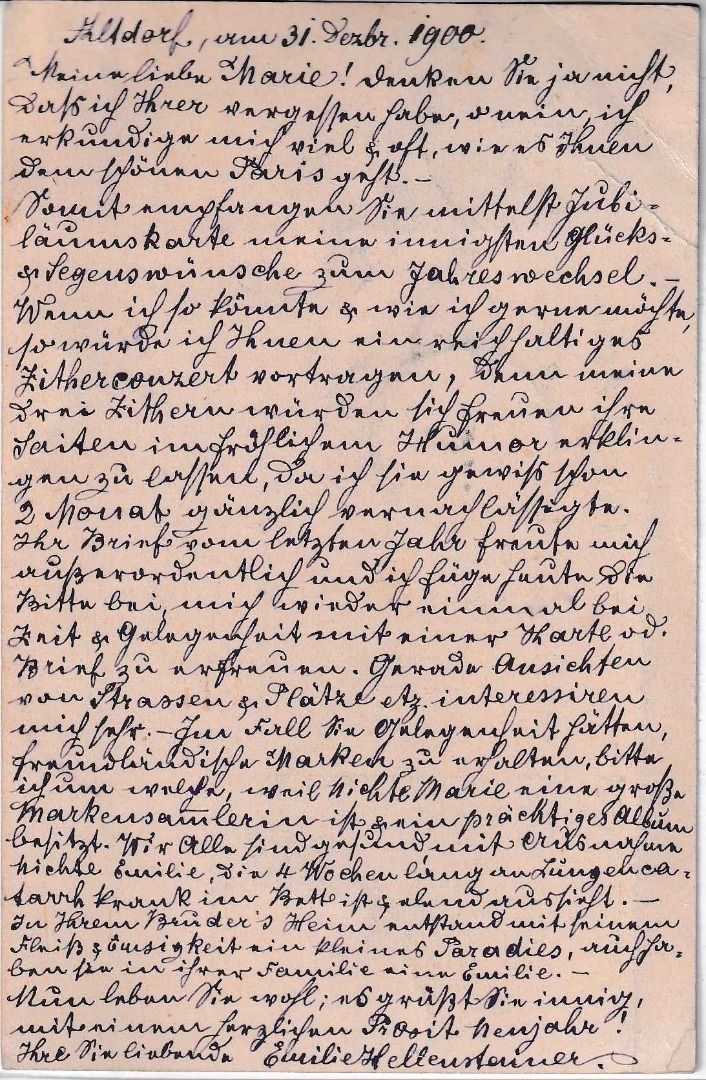 Altdorf, am 31. Dezbr. 1900.
Meine liebe Marie! Denken Sie ja nicht,
dass ich Ihrer vergessen habe, o nein, ich
erkundige mich viel & oft, wie es Ihnen
dem schönen Paris geht. –
Somit empfangen Sie mittelst Jubi-
läumskarte meine innigsten Glücks-
& Segenswünsche zum Jahreswechsel. –
Wenn ich so könnte & wie ich gerne möchte,
so würde ich Ihnen ein reichhaltiges
Zitherconzert vortragen, denn meine
drei Zithern würden sich freuen ihre
Saiten im fröhlichem Humor erklin-
gen zu lassen, da ich sie gewiss schon
2 Monat gänzlich vernachlässigte.
Ihr Brief vom letzten Jahr freute mich
außerordentlich und ich füge heute die
Bitte bei, mich wieder einmal bei
Zeit & Gelegenheit mit einer Karte od.
Brief zu erfreuen. Gerade Ansichten
von Strassen & Plätze etz. interessiren
mich sehr. – Im Fall Sie Gelegenheit hätten,
fremdländische Marken zu erhalten, bitte
ich um welche, weil Nichte Marie eine große
Markensam̅lerin ist & ein prächtiges Album
besitzt. Wir Alle sind gesund mit Ausnahme
Nichte Emilie, die 4 Wochen lang an Lungenca-
tarrh krank im Bett ist & elend aussieht. –
In Ihrem Bruder's Heim entstand mit seinem
Fleiß & Emsigkeit ein kleines Paradies, auch ha-
ben sie in ihrer Familie eine Emilie. –
Nun leben Sie wohl; es grüßt Sie innig,
mit einem herzlichen Prosit Neujahr!
Ihre Sie liebende Emilie Hellensteiner.